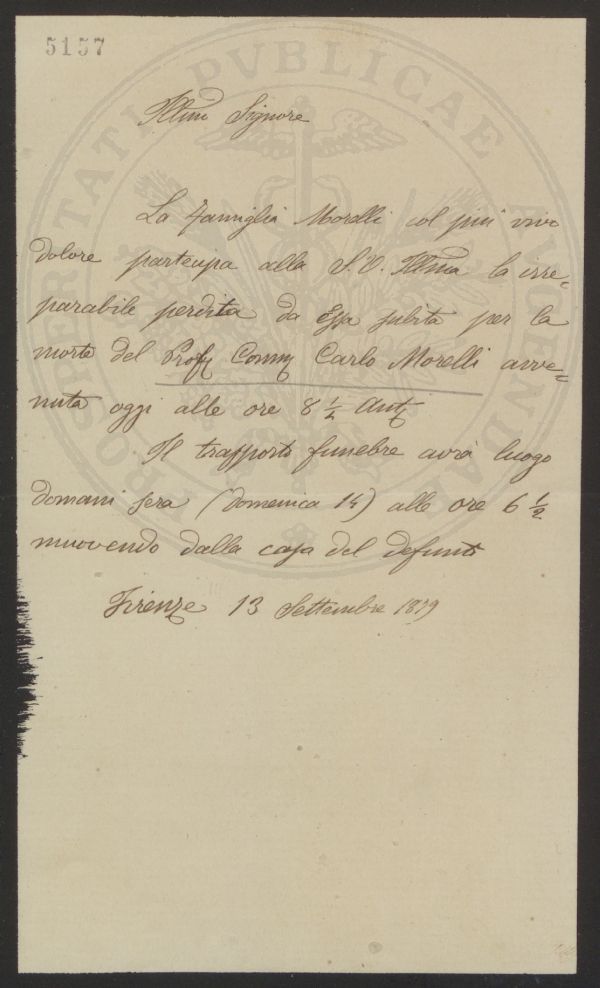 5157
PROSPERITATI PVBLICAE AVGENDAE
Illmo Signore
La Famiglia Morelli col più vivo
dolore partecipa alla S.V. Illma la irre=
parabile perdita da Essa subita per la
morte del Profr Commr Carlo Morelli avve=
nuta oggi alle ore 8 ½ Antne
Il trasporto funebre avrà luogo
domani sera (Domenica 14) alle ore 6 ½
muovendo dalla casa del defunto
Firenze 13 Settembre 1879